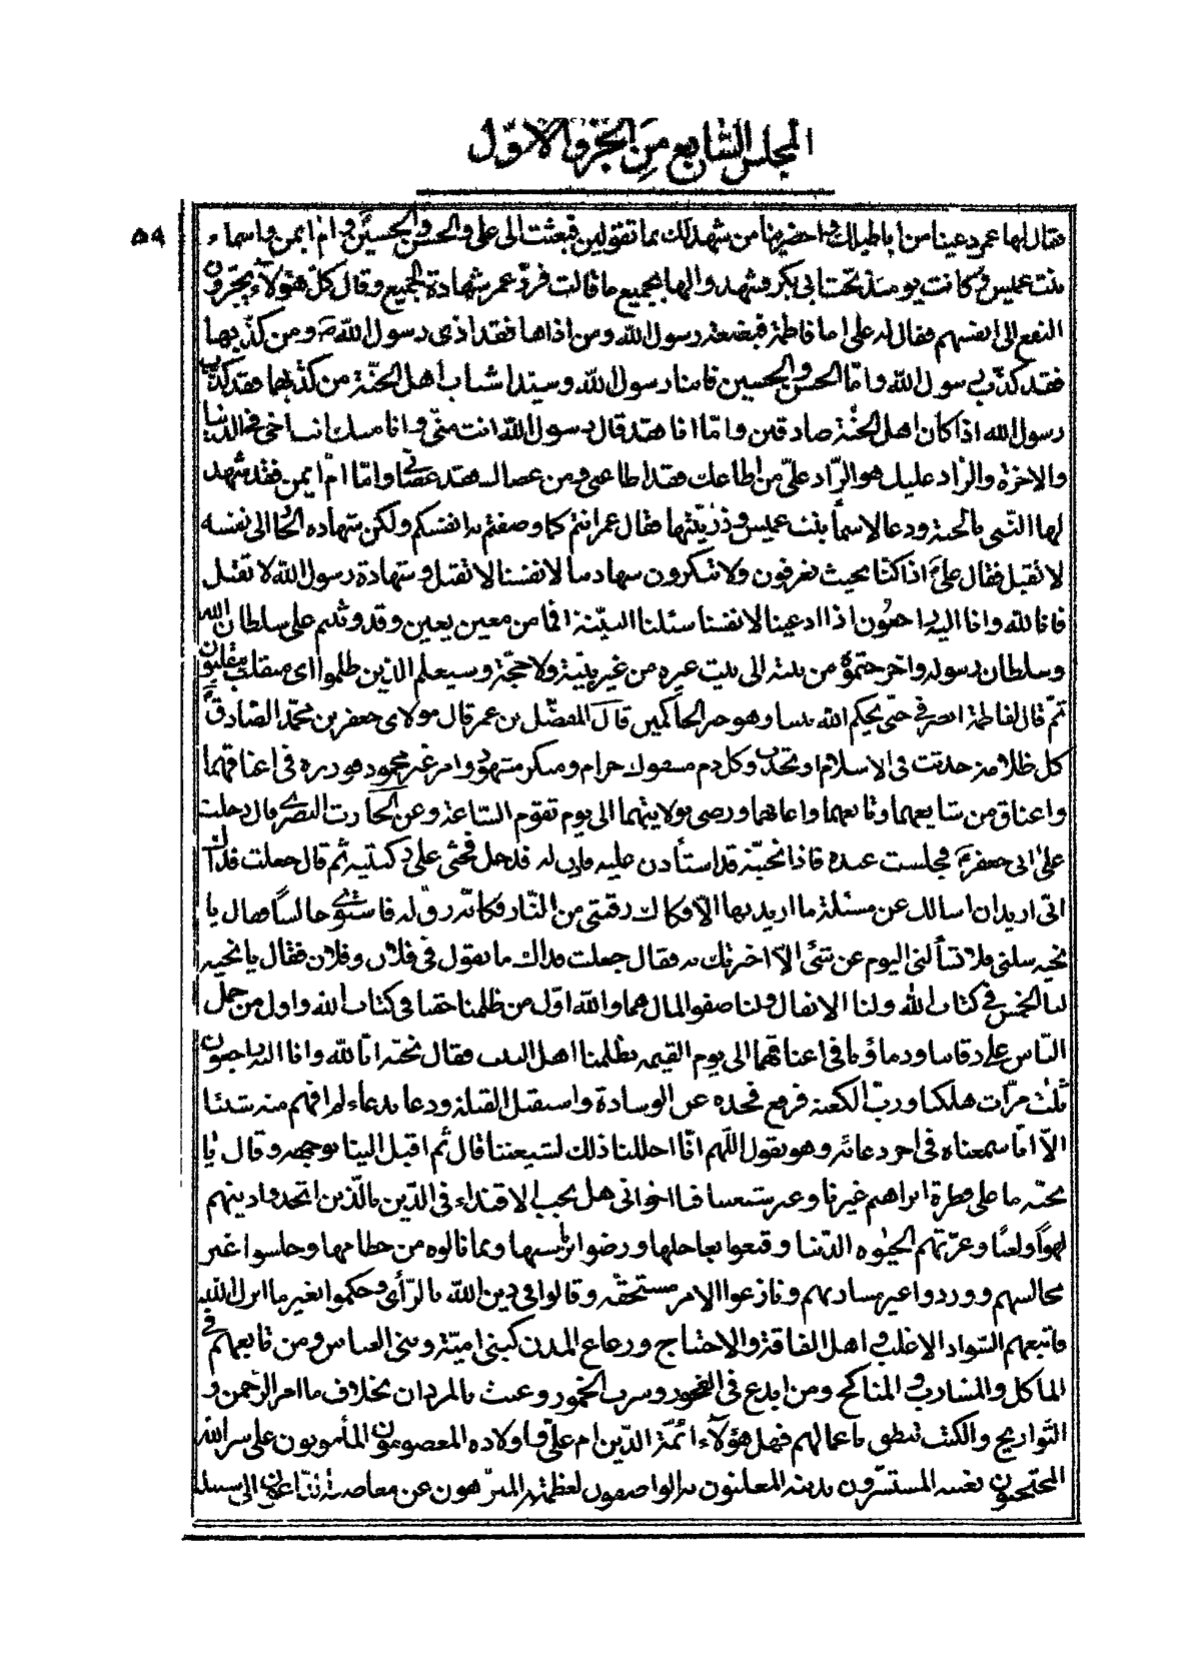 المجلس السابع من الجزو الاول
٥٩
فقال لها عمر دعينا من اباطيلك واحضرينا من يشهد لك بما تقولين فبعثت الى على والحسن والحسين وام ايمن واسماء
بنت عميس وكانت يومئذ تحت ابى بكر فشهدوا لها بجميع ما قالت فرد عمر شهادة الجميع وقال كل هؤلاء يجرون
النفع الى انفسهم فقال له على اما فاطمة فبضعة رسول الله ومن اذاها فقد اذى رسول الله ومن كذبها
فقد كذب رسول الله واما الحسن والحسين فابنا رسول الله وسيدا شباب اهل الجنة من كذبهما فقد كذب
رسول الله اذا كان اهل الجنة صادقين واما انا فقد قال رسول الله انت منى وانا منك انت اخى فى الدنيا
والاخرة والراد عليك هو الراد على من اطاعك فقد اطاعنى ومن عصاك فقد عصانى واما ام ايمن فقد شهد
لها النبى بالجنة ودعا لاسماء بنت عميس وذريتها فقال عمر انتم كما وصفتم به انفسكم ولكن شهادة الجار الى نفسه
لا تقبل فقال على اذا كنا بحيث تعرفون ولا تنكرون وشهادتنا لانفسنا لا تقبل وشهادة رسول الله لا تقبل
فانا لله وانا اليه راجعون اذا ادعينا لانفسنا سئلنا البينة افما من معين يعين وقد وثبتم على سلطان الله
وسلطان رسوله واخرجتموه من بيته الى بيت غيره من غير بينة ولا حجة وسيعلم الذين ظلموا اى منقلب ينقلبون
ثم قال لفاطمة انصرفى حتى يحكم الله بيننا وهو خير الحاكمين قال المفضل بن عمر قال مولاى جعفر بن محمد الصادق
كل ظلامة حدثت فى الاسلام او تحدث وكل دم مسفوك حرام ومنكر مشهور وامر غير محمود فوزره فى اعناقهما
واعناق من شايعهما وتابعهما واعانهما ورضى بولايتهما الى يوم تقوم الساعة وعن الحارث النضرى قال دخلت
على ابى جعفر فجلست عنده فاذا نجية قد استأذن عليه فاذن له فدخل فجثى على ركبتيه ثم قال جعلت فداك
انى اريد ان اسالك عن مسئلة ما اريد بها الا فكاك رقبتى من النار فكانه رق له فاستوى جالسا فقال يا
نجية سلنى فلا تسألنى اليوم عن شئ الا اخبرتك به فقال جعلت فداك ما تقول فى فلان وفلان فقال يا نجية
لنا الخمس فى كتاب الله ولنا الانفال ولنا صفو المال هما والله اول من ظلمنا حقنا فى كتاب الله واول من حمل
الناس على رقابنا ودماؤنا فى اعناقهما الى يوم القيمة بظلمنا اهل البيت فقال نجية انا لله وانا اليه راجعون
ثلث مرات هلكنا ورب الكعبة فرفع فخذه عن الوسادة واستقبل القبلة ودعا بدعاء لم افهم منه شيئا
الا انا سمعناه فى اخر دعائه وهو يقول اللهم انا احللنا ذلك لشيعتنا قال ثم اقبل الينا بوجهه وقال يا
نجية ما على فطرة ابراهيم غيرنا وغير شيعتنا فيا اخوانى هل يجب الاقتداء فى الدين بالذين اتخذوا دينهم
لهوا ولعبا وغرتهم الحيوة الدنيا وقنعوا بعاجلها ورضوا برئاستها وبما نالوه من حطامها وجلسوا غير
مجالسهم ووردوا غير مساربهم ونازعوا الامر مستحقه وقالوا فى دين الله بالرأى وحكموا بغير ما انزل الله
فاتبعهم السواد الاغلب واهل الفاقة والاحتياج ورعاع المدن كبنى امية وبنى العباس ومن تابعهم فى
الماكل والمشارب والمناكح ومن ابدع فى الفجور وشرب الخمور وعبث بالمردان بخلاف ما امر الرحمن و
التواريخ والكتب تنطق باعمالهم فهل هؤلاء ائمة الدين ام على واولاده المعصومون المأمونون على سر الله
المحتجبون بغيبه المستسرون بدينه المعلنون به الواصفون لعظمته المتنزهون عن معاصيه الداعون الى سبيله